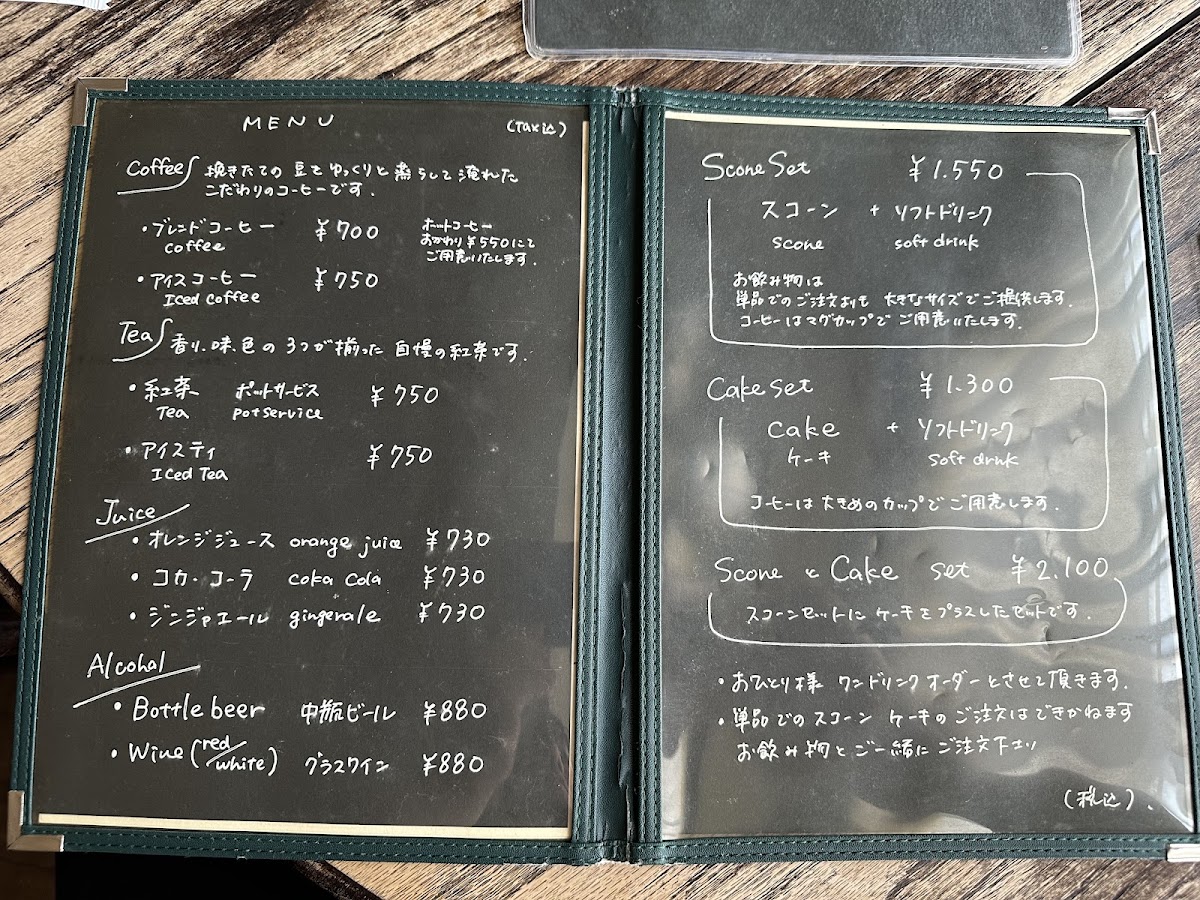 MENU (TAX込)
Coffee 挽きたての 豆を ゆっくりと 蒸らして 淹れた
こだわりのコーヒーです.
・ブレンドコーヒー ¥700
coffee
ホットコーヒー
おかわり ¥550にて
ご用意いたします.
・アイスコーヒー ¥750
Iced coffee
Tea 香り、味、色の 3つが揃った 自慢の紅茶です.
・紅茶 ポットサービス ¥750
Tea potservice
・アイスティ ¥750
Iced Tea
Juice
・オレンジジュース orange juice ¥730
・コカ・コーラ coka cola ¥730
・ジンジャエール gingerale ¥730
Alcohal
・Bottle beer 中瓶ビール ¥880
・Wine (red/white) グラスワイン ¥880
Scone Set ¥1.550
スコーン + ソフトドリンク
scone soft drink
お飲み物は
単品でのご注文よりも 大きなサイズでご提供します.
コーヒーはマグカップで ご用意いたします.
Cake set ¥1.300
cake + ソフトドリンク
ケーキ soft drink
コーヒーは 大きめのカップで ご用意します.
Scone と Cake set ¥2.100
スコーンセットに ケーキをプラスしたセットです.
・おひとり様 ワンドリンクオーダーとさせて頂きます.
・単品でのスコーン ケーキのご注文はできかねます
お飲み物とご一緒にご注文下さい
(税込).